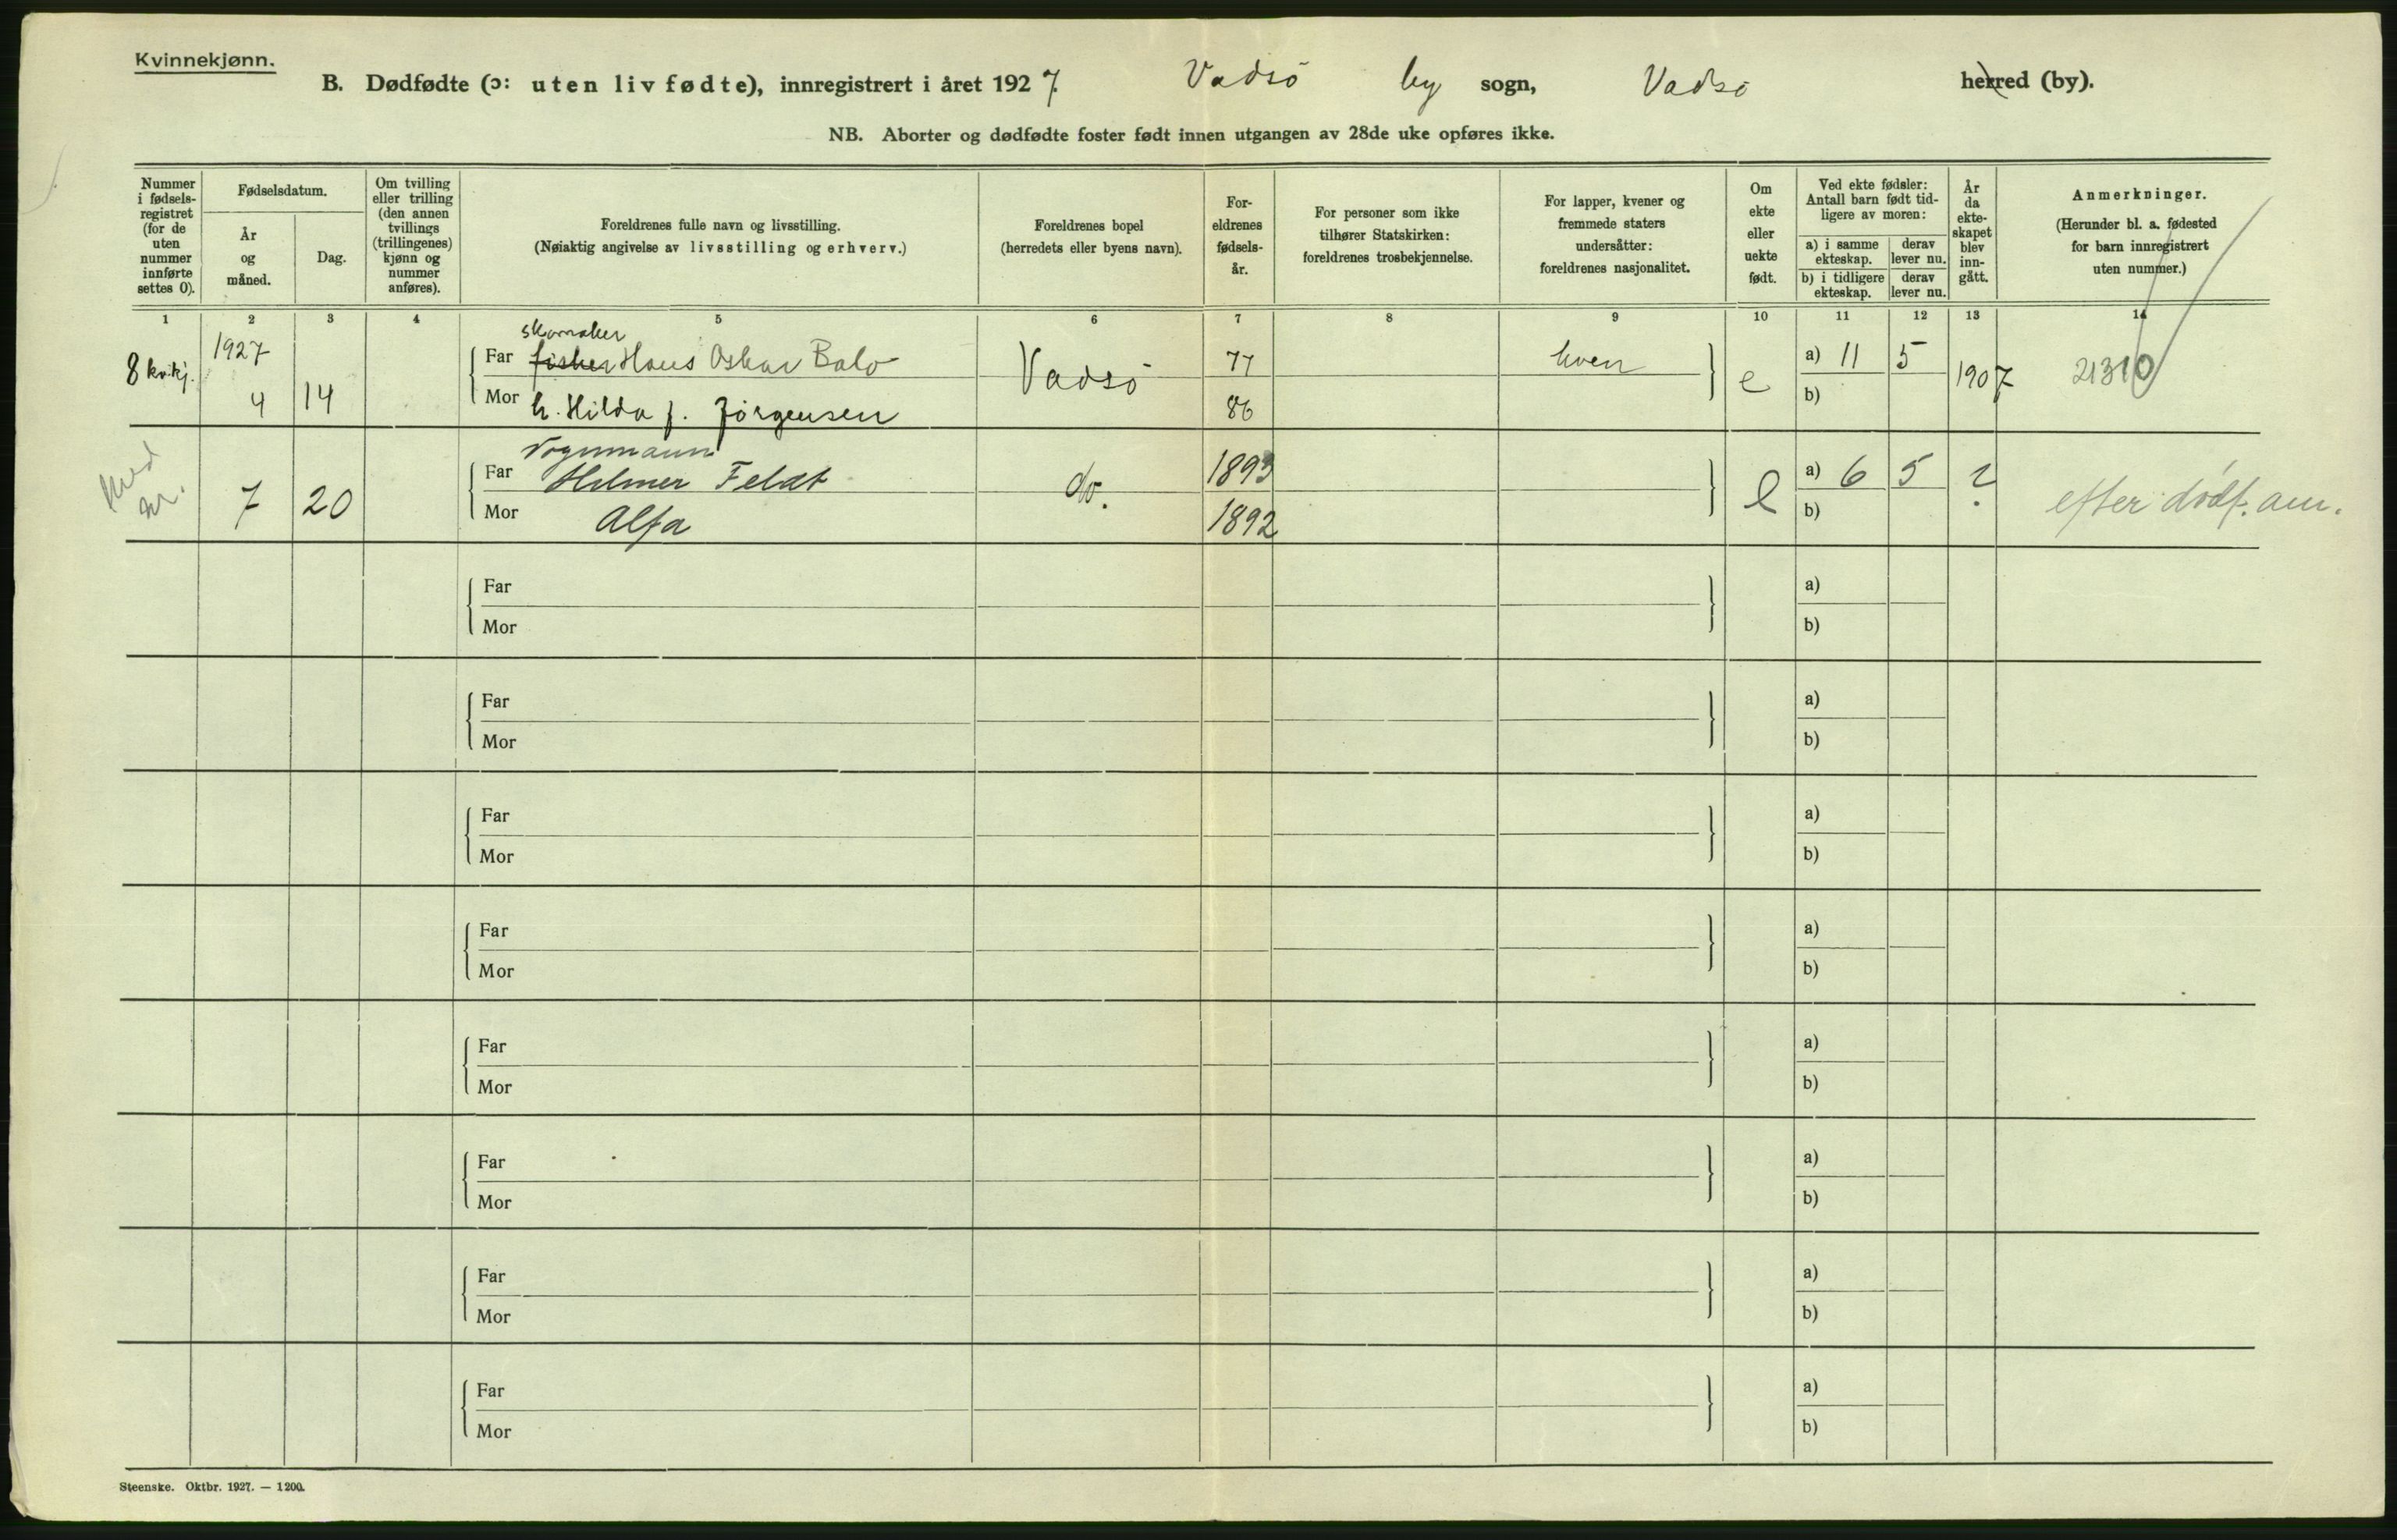 Kvinnekjønn.
B. Dødfødte (ɔ: uten liv fødte), innregistrert i året 1927 Vadsö by sogn, Vadsö herred (by).
NB. Aborter og dødfødte foster født innen utgangen av 28de uke opføres ikke.
Nummer i fødsels-registret (for de uten nummer innførte settes 0).
Fødselsdatum.
År og måned.
Dag.
Om tvilling eller trilling (den annen tvillings (trillingenes) kjønn og nummer anføres).
Foreldrenes fulle navn og livsstilling.
(Nøiaktig angivelse av livsstilling og erhverv.)
Foreldrenes bopel
(herredets eller byens navn).
For-eldrenes fødsels-år.
For personer som ikke tilhører Statskirken: foreldrenes trosbekjennelse.
For lapper, kvener og fremmede staters undersåtter: foreldrenes nasjonalitet.
Om ekte eller uekte født.
Ved ekte fødsler: Antall barn født tid-ligere av moren:
a) i samme ekteskap.
derav lever nu.
b) i tidligere ekteskap.
derav lever nu.
År da ekte-skapet blev inn-gått.
Anmerkninger.
(Herunder bl. a. fødested for barn innregistrert uten nummer.)
1 2 3 4 5 6 7 8 9 10 11 12 13 14
skomaker
8 kv.kj. 1927 Far fisker Hans Oskar Balo Vadsö 77 kven e a) 11 5 1907 21310
4 14 Mor h. Hilda f. Jörgensen 86 b)
Vognmann
med nr. 7 20 Far Hilmer Feldt do. 1893 e a) 6 5 ? efter dödf. am.
Mor Alfa 1892 b)
Far a)
Mor b)
Far a)
Mor b)
Far a)
Mor b)
Far a)
Mor b)
Far a)
Mor b)
Far a)
Mor b)
Far a)
Mor b)
Far a)
Mor b)
Steenske. Oktbr. 1927. — 1200.